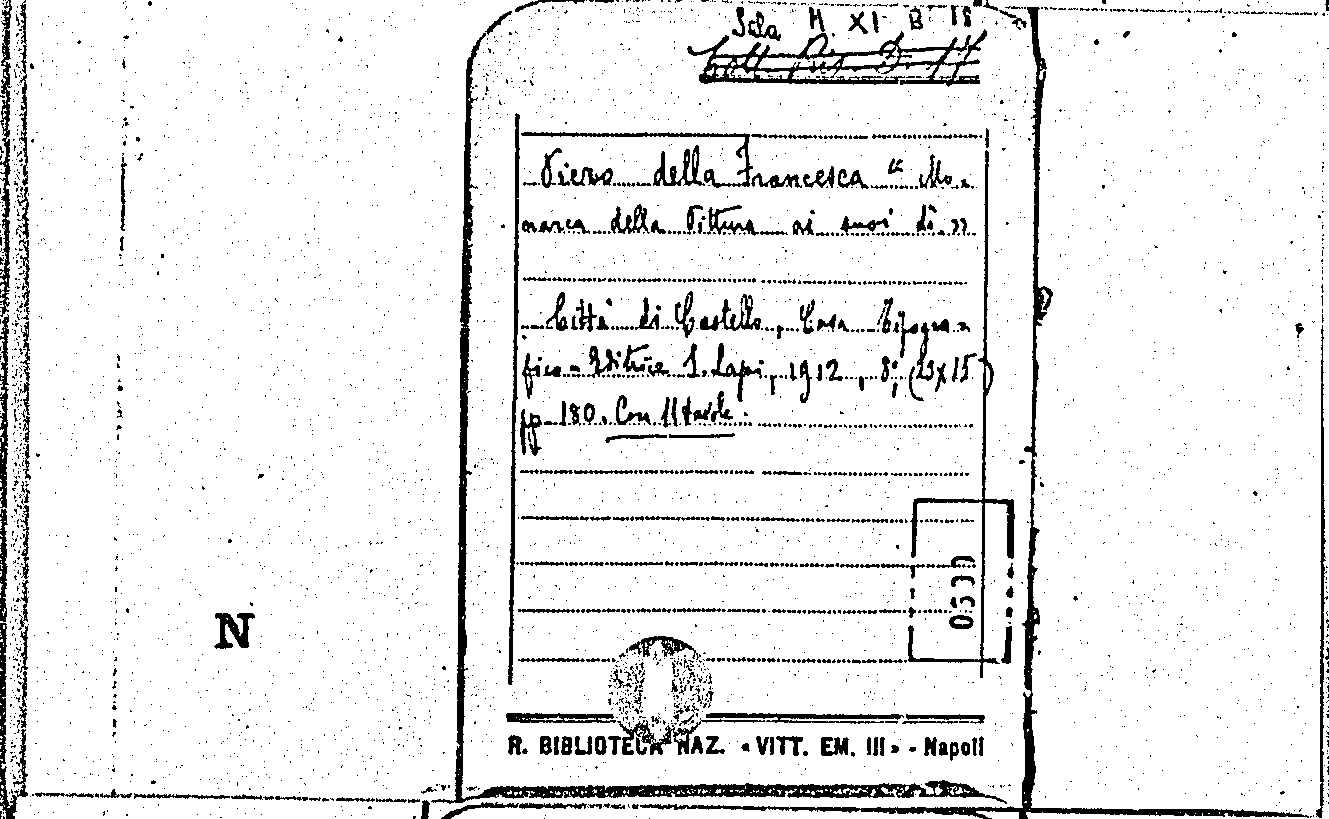 Sala M. XI B 18
Piero della Francesca “ Mo=
narca della Pittura ai suoi dì. »
Città di Castello, Casa Tipogra=
fico-Editrice S. Lapi, 1912, 8°, (23x15)
pp 180. Con 11 tavole.
N
R. BIBLIOTECA NAZ. « VITT. EM. III » - Napoli